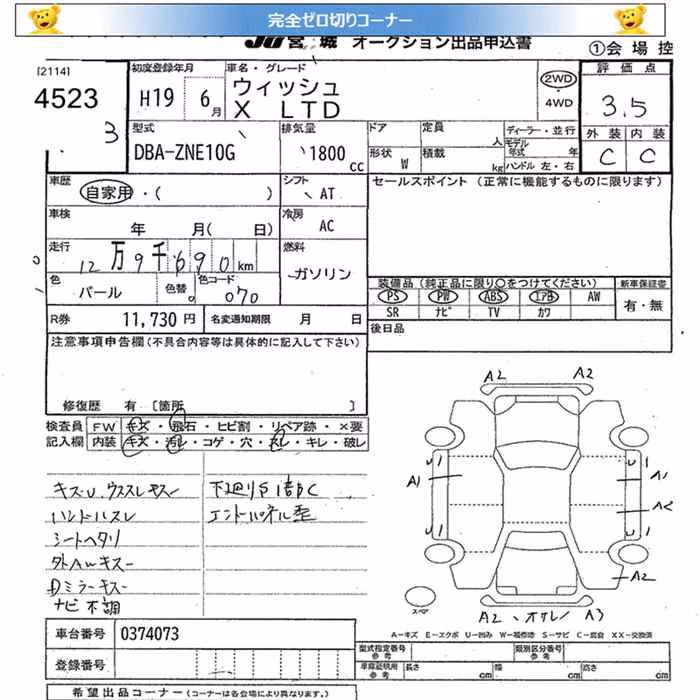 完全ゼロ切りコーナー
JU 宮城 オークション出品申込書
①会場控
[2114]
4523
3
初度登録年月
H19 6月
車名・グレード
ウィッシュ
X LTD
2WD
・4WD
評価点
3.5
外装 内装
C C
型式
DBA-ZNE10G
排気量
1800 CC
ドア 定員 人
形状 W 積載 kg
ディーラー・並行
モデル年式 年
ハンドル 左・右
車歴
自家用・( )
シフト
AT
セールスポイント (正常に機能するものに限ります)
車検
年 月( 日)
冷房
AC
走行
12万9千690km
燃料
ガソリン
色
パール
色替
色コード
070
装備品 (純正品に限り〇をつけてください)
新車保証書
PS PW ABS エアB AW
SR ナビ TV カワ
有・無
R券 11,730円 名変通知期限 月 日
後日品
注意事項申告欄(不具合内容等は具体的に記入して下さい)
修復歴 有 〔箇所 〕
検査員 FW キズ・飛石・ヒビ割・リペア跡・×要
記入欄 内装 キズ・汚レ・コゲ・穴・スレ・キレ・破レ
キズ・U ウススレキズ
ハンドルスレ
シートヘタリ
外AWキズ
Dミラーキズ
ナビ不調
下廻りS1部C
エンドパネル歪
A2 A2
A1
U 1
U 1
U 1
U 1
A1
A2
A2
スペア
A2 、オサレ A3
A-キズ E-エクボ U-凹み W-補修跡 S-サビ C-腐食 XX-交換済
車台番号 0374073
登録番号
型式指定番号 参考
類別区分番号 参考
車庫証明用 参考 長さ cm 幅 cm 高さ cm
希望出品コーナー (コーナーは各会場により異なります。)